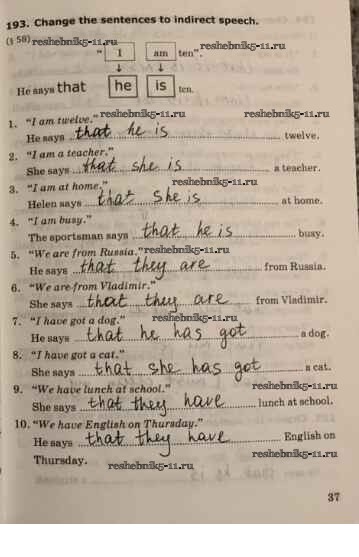 193. Change the sentences to indirect speech.
(§ 58) reshebnik5-11.ru
" I am ten". reshebnik5-11.ru
↓ ↓
He says that he is ten.
1. "I am twelve." reshebnik5-11.ru reshebnik5-11.ru
He says that he is twelve.
2. "I am a teacher." reshebnik5-11.ru
She says that she is a teacher.
3. "I am at home." reshebnik5-11.ru
Helen says that she is at home.
4. "I am busy."
The sportsman says that he is busy.
5. "We are from Russia." reshebnik5-11.ru
He says that they are from Russia.
6. "We are from Vladimir." reshebnik5-11.ru
She says that they are from Vladimir.
7. "I have got a dog." reshebnik5-11.ru
He says that he has got a dog.
8. "I have got a cat."
She says that she has got a cat.
9. "We have lunch at school." reshebnik5-11.ru
She says that they have lunch at school.
10. "We have English on Thursday." reshebnik5-11.ru
He says that they have English on
Thursday. reshebnik5-11.ru reshebnik5-11.ru
37